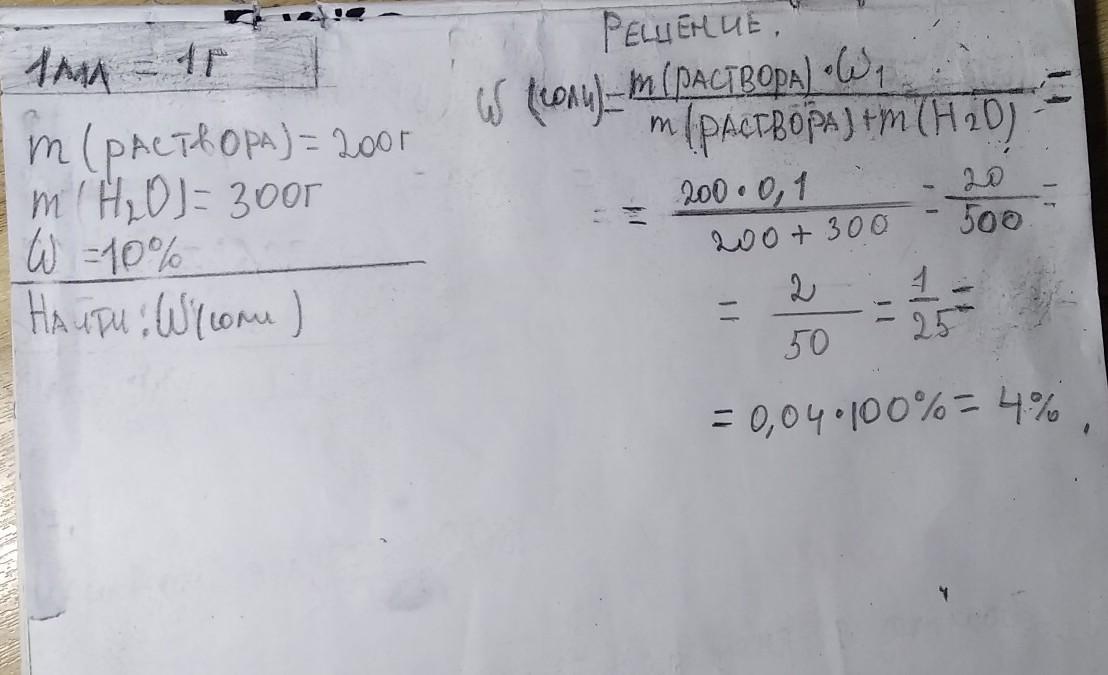 1мл = 1г
m(РАСТВОРА)=200г
m(H₂O)=300г
W =10%
НАЙТИ:W(соли)
РЕШЕНИЕ.
W (соли)=m(РАСТВОРА)·W₁/m(РАСТВОРА)+m(H₂O) =
= = 200·0,1/200+300 = 20/500 =
= 2/50 = 1/25 =
= 0,04·100%= 4%.